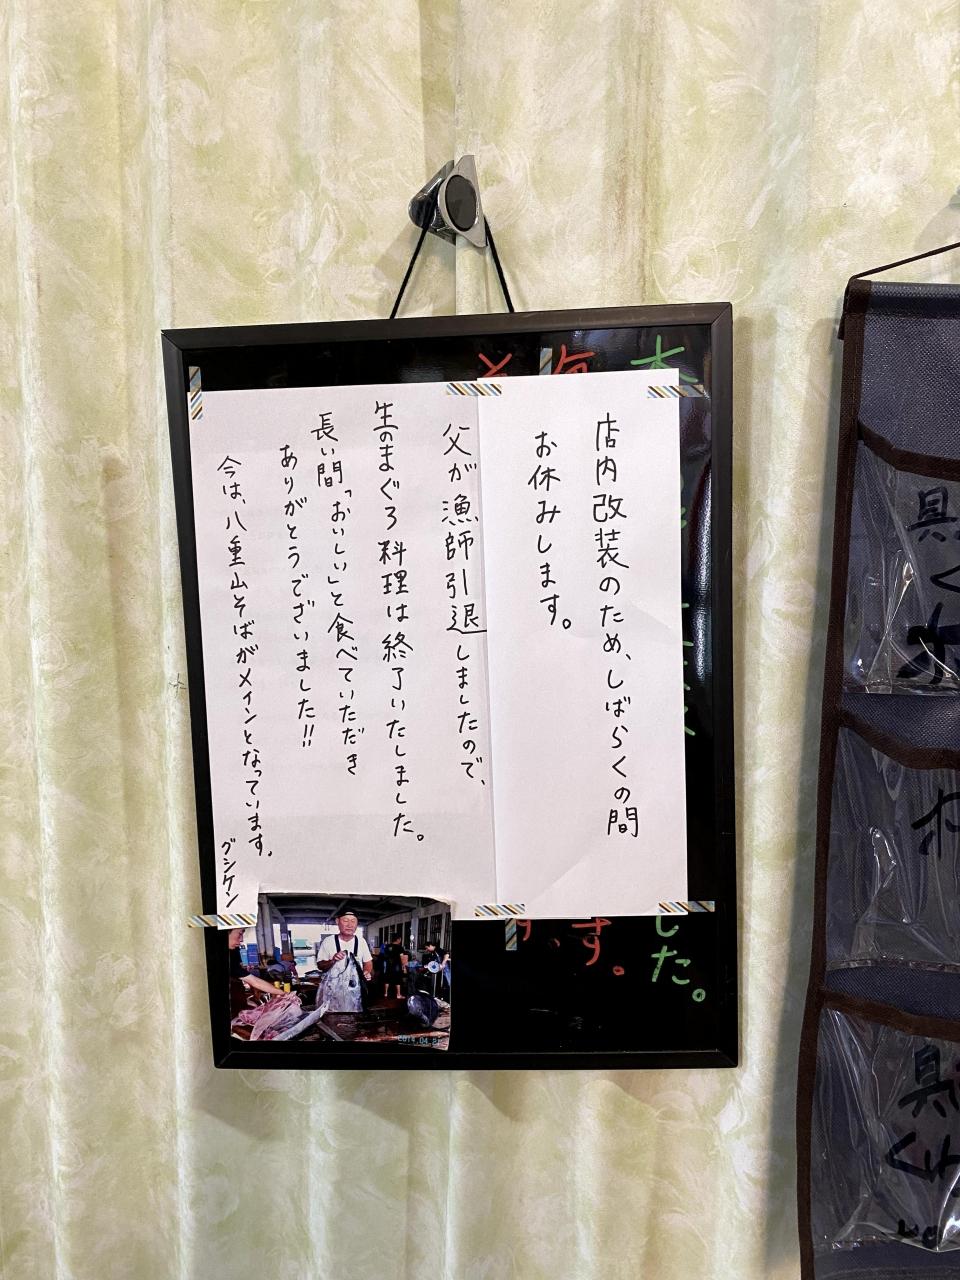 店内改装のため、しばらくの間
お休みします。
父が漁師引退しましたので、
生のまぐろ料理は終了いたしました。
長い間「おいしい」と食べていただき
ありがとうございました!!
今は、八重山そばがメインとなっています。
グシケン
した。
す。
す、
2014.04
具
く
わ
具
くわ